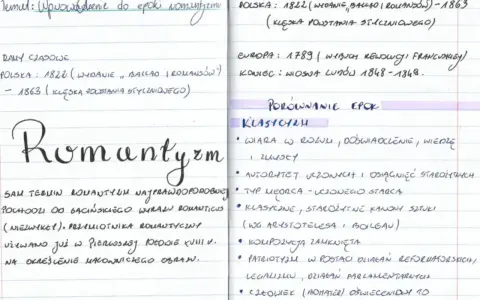 Temat: Wprowadzenie do epoki romantyzmu
RAMY CZASOWE
POLSKA: 1822 (WYDANIE „BALLAD I ROMANSÓW")
– 1863 (KLĘSKA POWSTANIA STYCZNIOWEGO)
Romantyzm
SAM TERMIN ROMANTYZM NAJPRAWDOPODOBNIEJ
POCHODZI OD ŁACIŃSKIEGO WYRAZU ROMANTICUS
(NIEZWYKŁY). PRZYMIOTNIKA ROMANTYCZNY
UŻYWANO JUŻ W PIERWSZEJ POŁOWIE XVIII W.
NA OKREŚLENIE MALOWNICZEGO OBRAZU.
POLSKA: 1822 (WYDANIE „BALLAD I ROMANSÓW") – 1863
(KLĘSKA POWSTANIA STYCZNIOWEGO)
EUROPA: 1789 (WYBUCH REWOLUCJI FRANCUSKIEJ)
KONIEC: WIOSNA LUDÓW 1848-1849.
PORÓWNANIE EPOK
KLASYCYZM
• WIARA W ROZUM, DOŚWIADCZENIE, WIEDZĘ
I ZMYSŁY
• AUTORYTET UCZONYCH I OSIĄGNIĘĆ STAROŻYTNYCH
• TYP MĘDRCA - UCZONEGO STARCA
• KLASYCZNE, STAROŻYTNE KANONY SZTUKI
(WG ARYSTOTELESA I BOILEAU)
• KOMPOZYCJA ZAMKNIĘTA
• PATRIOTYZM W POSTACI DZIAŁAŃ REFORMATORSKICH,
LEGALIZMU, DZIAŁAŃ PARLAMENTARNYCH
• CZŁOWIEK (BOHATER) OŚWIECENIOWY TO